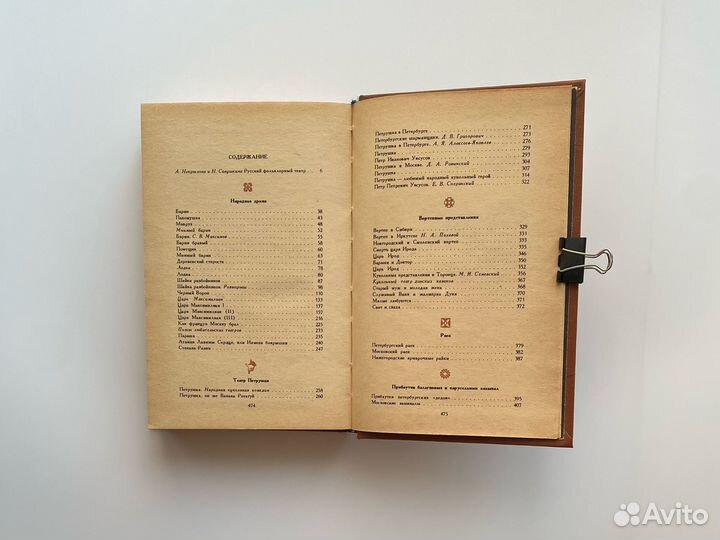 СОДЕРЖАНИЕ
А. Некрылова и Н. Савушкина Русский фольклорный театр . . . 6
Народная драма
Барин . . . 38
Пахомушка . . . 43
Маврух . . . 48
Мнимый барин . . . 51
Барин. С. В. Максимов . . . 55
Барин бравый . . . 58
Помещик . . . 60
Мнимый барин . . . 68
Деревенский староста . . . 71
Лодка . . . 78
Лодка . . . 80
Шайка разбойников . . . 87
Шайка разбойников
Черный Ворон . . . 110
Царь Максимилиан . . . 133
Царь Максимилиан I . . . 137
Царь Максимилиан (II) . . . 157
Царь Максимилиан (III) . . . 216
Как француз Москву брал . . . 223
Пьесы любительских театров . . . 235
Параша . . . 235
Атаман Львиное Сердце, или Измена вторичная
Степан Разин . . . 247
Театр Петрушки
Петрушка. Народная кукольная комедия . . . 258
Петрушка, он же Ванька Рататуй . . . 260
474
Петрушка в Петербурге . . . 271
Петербургские шарманщики. Д. В. Григорович . . . 273
Петрушка в Петербурге. А. Я. Алексеев-Яковлев . . . 276
Петрушка . . . 279
Петр Иванович Уксусов . . . 293
Петрушка в Москве. Д. А. Ровинский . . . 304
Петрушка . . . 307
Петрушка — любимый народный кукольный герой . . . 314
Петр Петрович Уксусов. Е. В. Сперанский . . . 322
Вертепные представления
Вертеп в Сибири . . . 329
Вертеп в Иркутске Н. А. Полевой . . . 331
Новгородский и Смоленский вертеп . . . 333
Смерть царя Ирода . . . 335
Царь Ирод . . . 344
Бариня и Доктор
Царь Ирод
Кукольные представления в Торопце. М. И. Семевский . . . 356
Кукольный театр донских казаков . . . 367
Старый муж и молодая жена . . . 367
Служивый Ваня и маляриха Дуня . . . 368
Малые любуются . . . 370
Сват и сваха . . . 372
Раек
Петербургский раек . . . 379
Московский раек . . . 382
Нижегородские ярмарочные райки . . . 387
Прибаутки балаганных и карусельных зазывал
Прибаутки петербургских «дедов» . . . 395
Московские зазывалы . . . 407
475
Avito